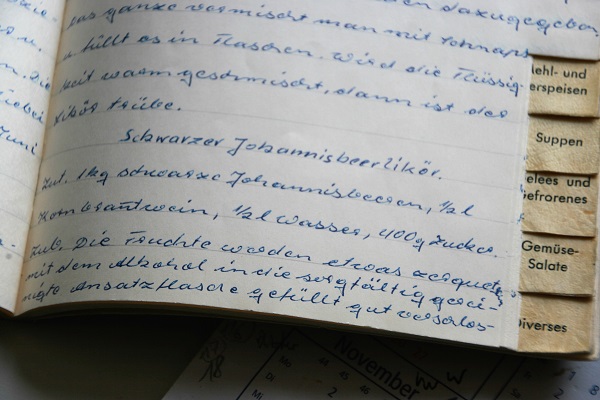 dazugegeben.
das ganze vermischt man mit Schnaps
u. füllt es in Flaschen. Wird die Flüssig-
keit warm gesmischt, dann ist der
Likör trübe.
Schwarzer Johannisbeerlikör.
Zut. 1 kg schwarze Johannisbeeren, ½ l
Kornbrantwein, ½ l Wasser, 400 g Zucker.
Zub. Die Früchte werden etwas zerquetscht
mit dem Alkohol in die sorgfältig gerei-
nigte Ansatzflasche gefüllt gut verschlos-
Die
Juni
ehl- und
erspeisen
Suppen
elees und
efrorenes
Gemüse-
Salate
iverses
November
Mo
44 45 46
Di
Mi
2
18